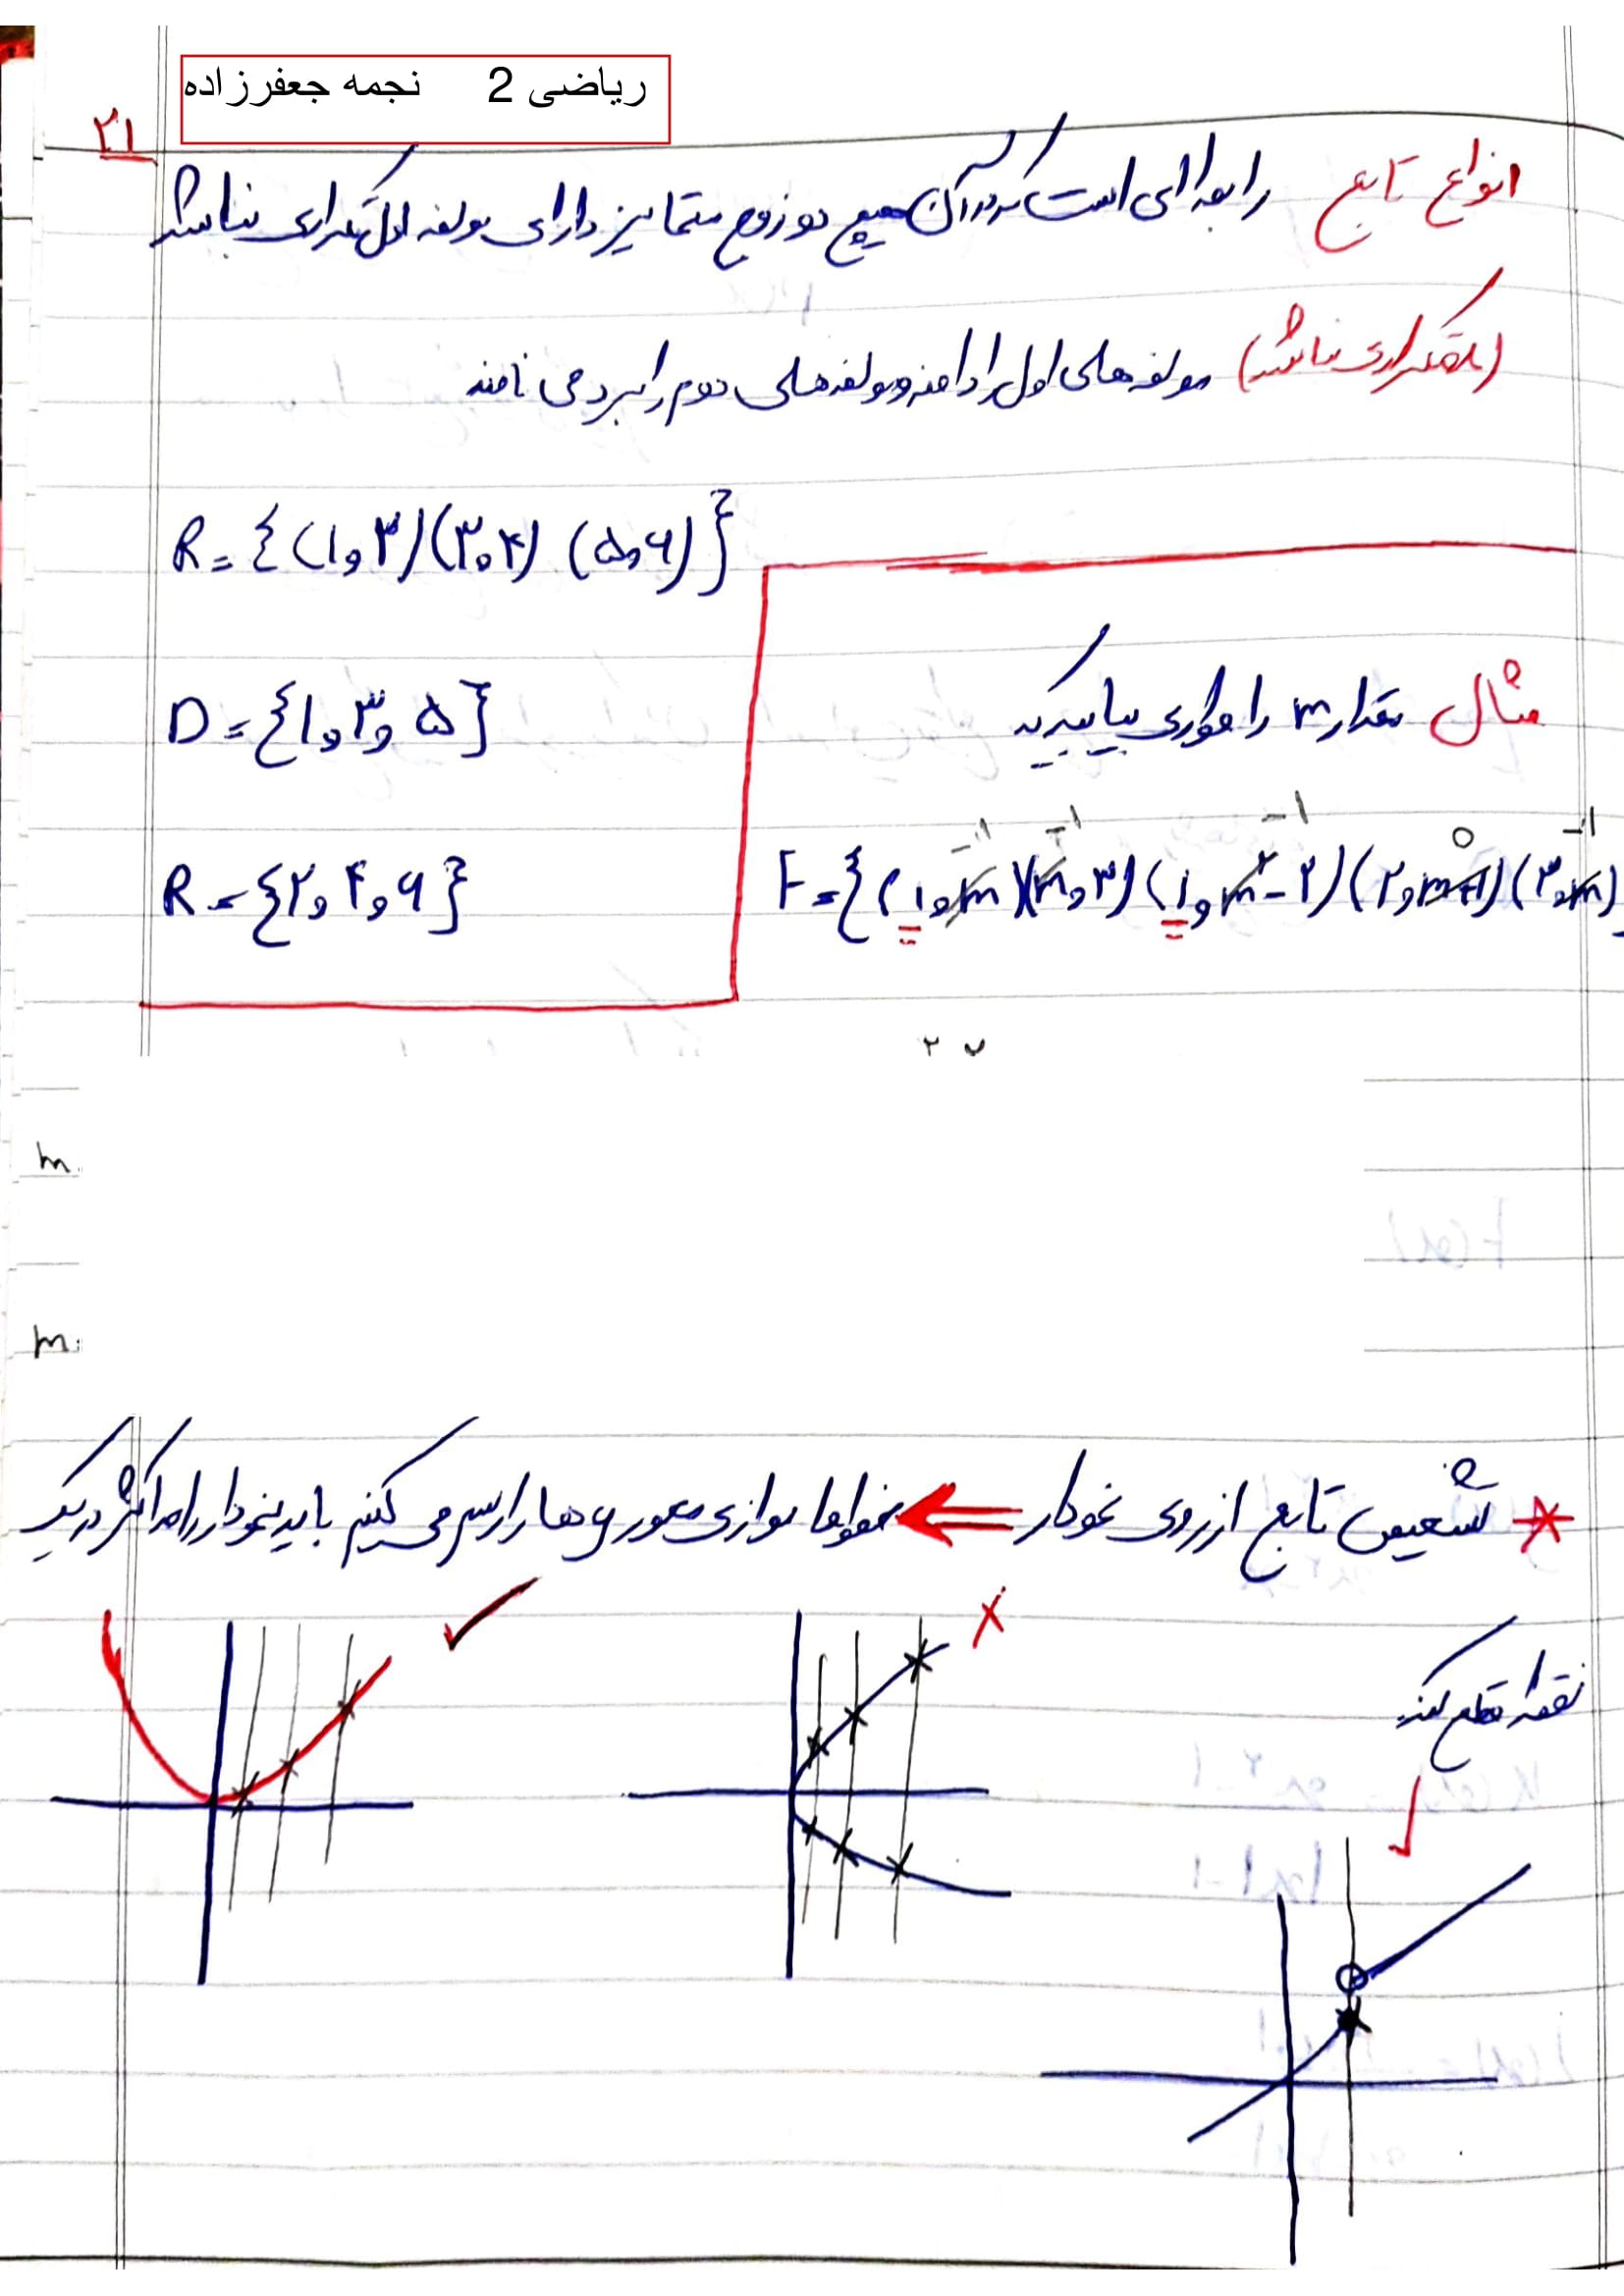 ریاضی 2 نجمه جعفرزاده
۲۱
انواع تابع رابطه ای است که در آن هیچ دو زوج متمایز دارای مولفه اول تکراری نباشد
نباشد) مولفه های اول را دامنه و مولفه های دوم را برد می نامند
R = {(۱و۳)(۳و۴) (۵و۶)}
D = {۱و۳و۵}
مثال مقدار m را طوری بیابید
-۱ -۱ -۱ ۰ -۱
R = {۲و۴و۶}
F = {(۱وm)(mو۳)(۱وm²-۲)(۲وm+۱)(۳وm)
m
m
* تشخیص تابع از روی نمودار ⇐ خطوط موازی محور y ها را رسم می کنیم باید نمودار را حداکثر در یک
نقطه قطع کند